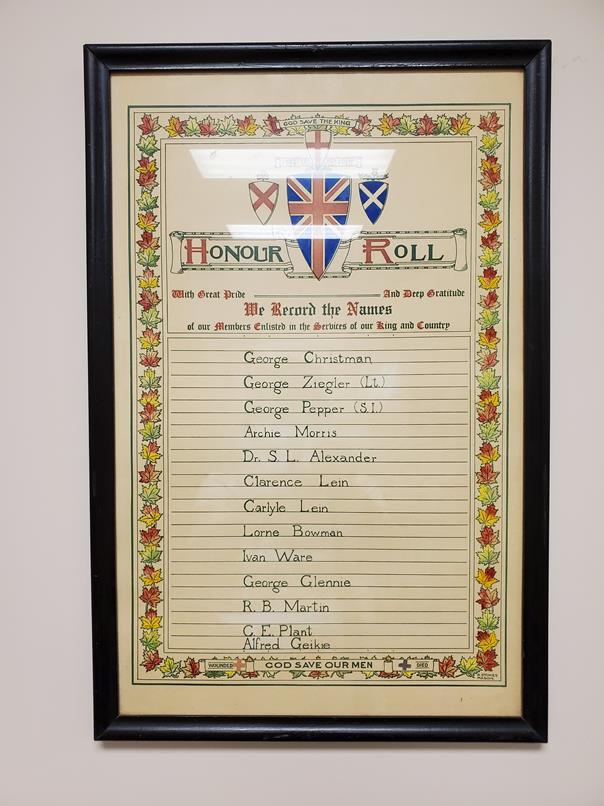 GOD SAVE THE KING
HONOUR ROLL
With Great Pride And Deep Gratitude
We Record the Names
of our Members Enlisted in the Services of our King and Country
George Christman
George Ziegler (Lt.)
George Pepper (S.I.)
Archie Morris
Dr. S. L. Alexander
Clarence Lein
Carlyle Lein
Lorne Bowman
Ivan Ware
George Glennie
R. B. Martin
C. E. Plant
Alfred Geikie
WOUNDED GOD SAVE OUR MEN DIED